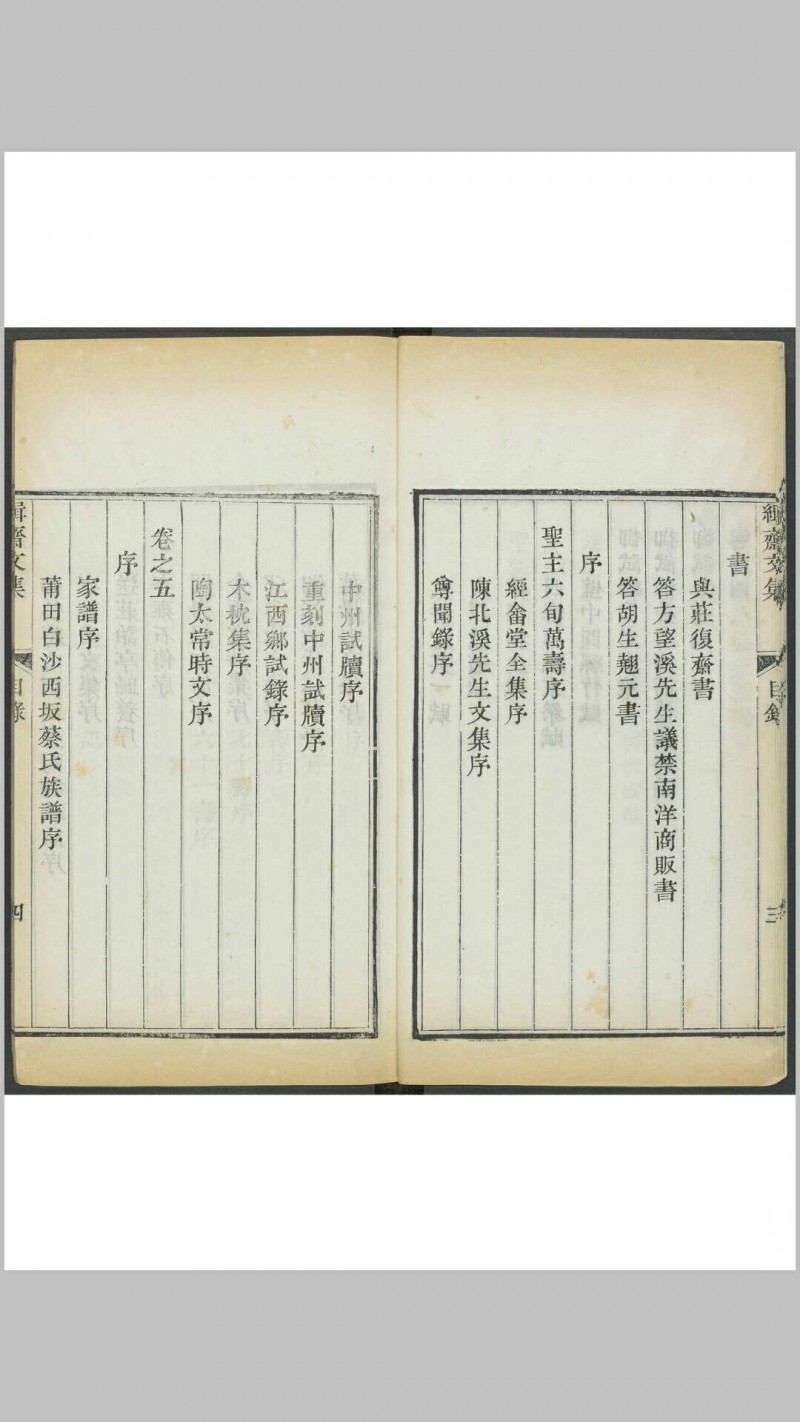 緝齋文集 目錄 三
書
與莊復齋書
答方望溪先生議禁南洋商販書
答胡生翹元書
序
聖主六旬萬壽序
經畬堂全集序
陳北溪先生文集序
尊聞錄序
中州試牘序
重刻中州試牘序
江西鄉試錄序
木枕集序
陶太常時文序
卷之五
序
家譜序
莆田白沙西坂蔡氏族譜序
緝齋文集 目錄 四